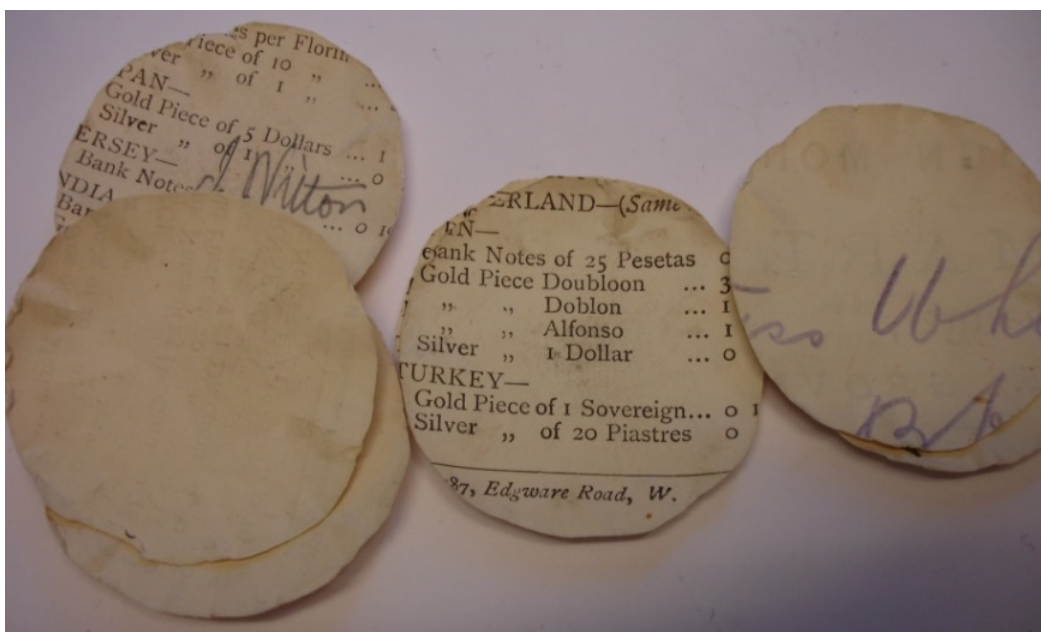 per Florin
Piece of 10 „ ...
„ of 1 „ ...
PAN—
Gold Piece of 5 Dollars ... 1
Silver „ of 1 „ ... 0
ERSEY—
Bank Notes ... 0 10
J Witton
NDIA
ERLAND—(Same
EN—
Bank Notes of 25 Pesetas 0
Gold Piece Doubloon ... 3
„ „ Doblon ... 1
„ „ Alfonso ... 1
Silver „ 1 Dollar ... 0
TURKEY—
Gold Piece of 1 Sovereign... 0 1
Silver „ of 20 Piastres 0
87, Edgware Road, W.
ss Wh